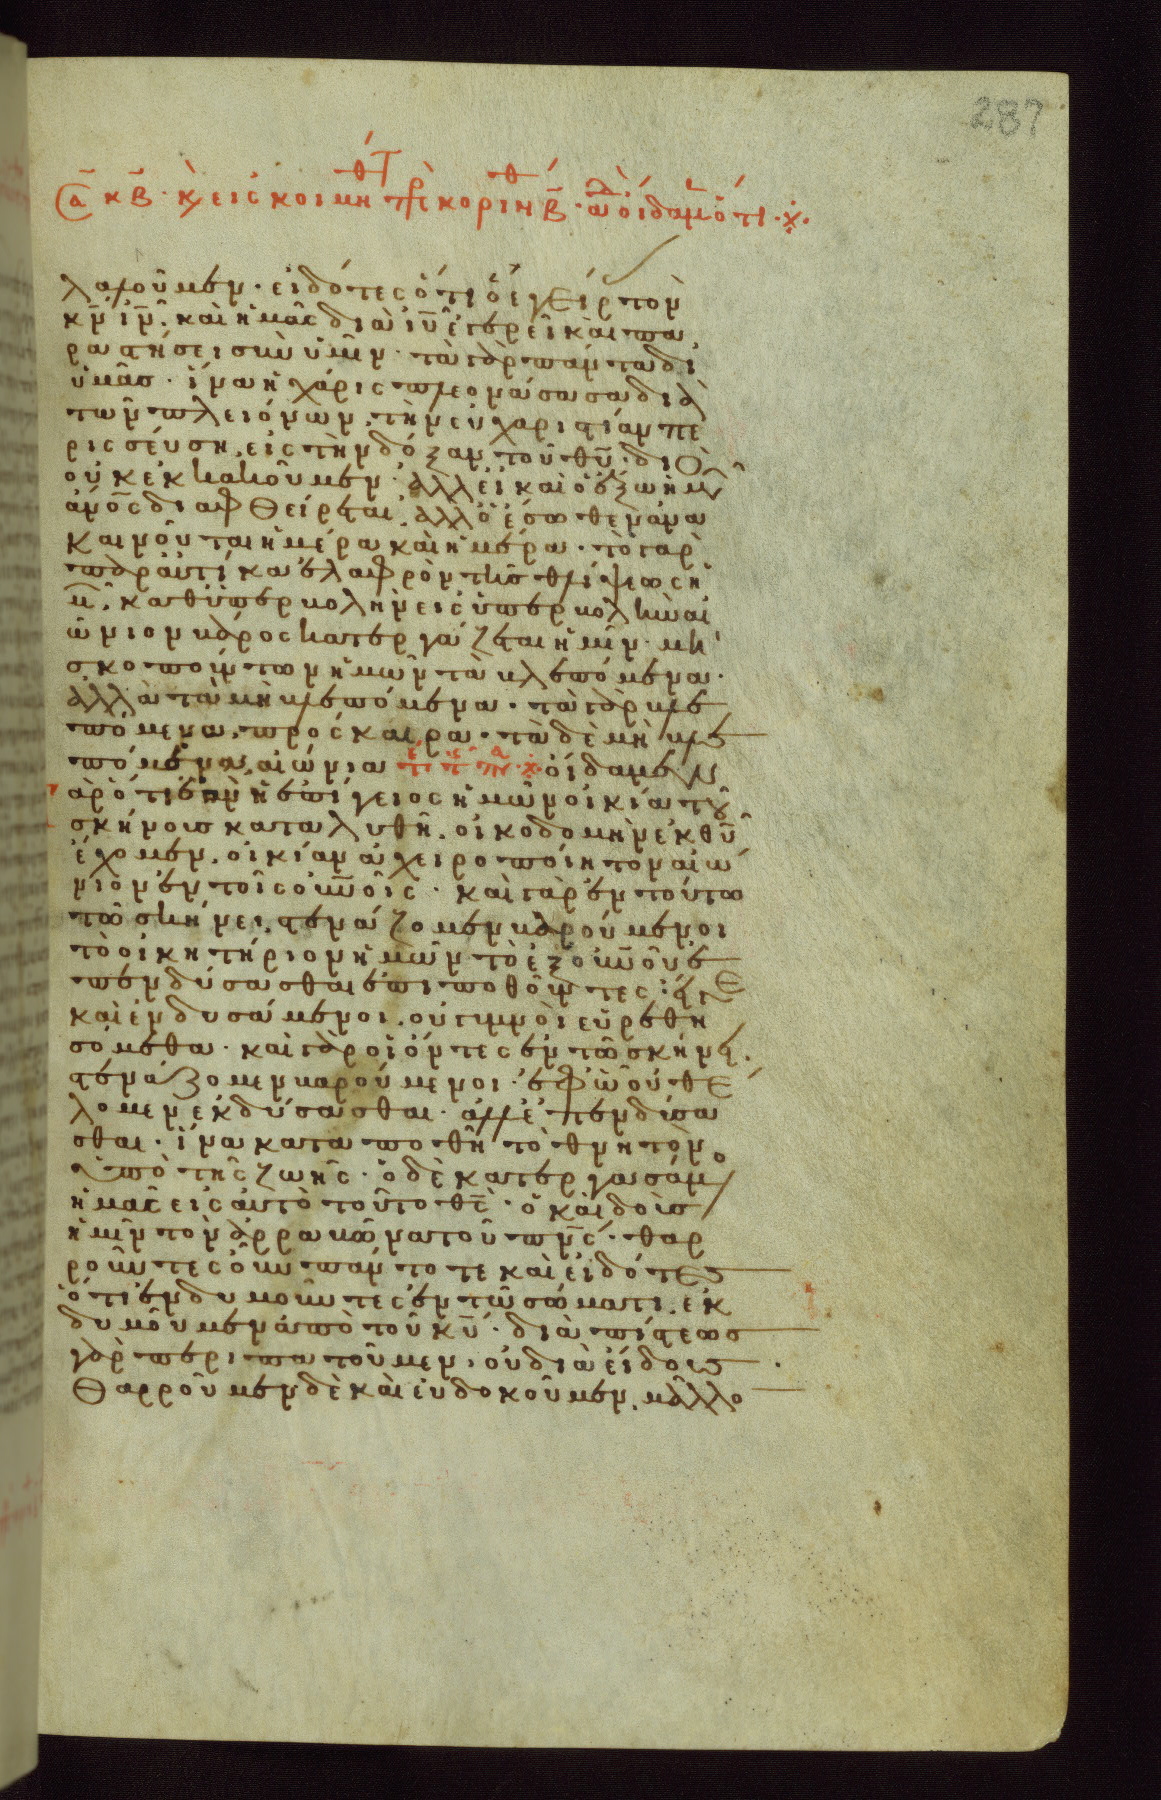 287
λαλοῦμεν· εἰδότες ὅτι ὁ ἐγείρ τὸν
κν̄ ιν̄· καὶ ἡμᾶς διὰ ιῡ ἐγερεῖ καὶ πα
ραστήσει σὺν ὑμῖν· τὰ γὰρ πάντα δι
ὑμᾶσ· ἵνα ἡ χάρις πλεονάσασα διὰ
τῶν πλειόνων, τὴν εὐχαριστίαν πε
ρισσεύση, εἰς τὴν δόξαν τοῦ θῡ· διὸ
οὐκ ἐκκακοῦμεν· ἀλλ εἰ καὶ ὁ ἔξω ἡμῶν
ἀν̄ος διαφθείρεται, ἀλλ ὁ ἔσωθεν ἀνα
καινοῦται ἡμέρα καὶ ἡμέρα· τὸ γὰρ
παραυτίκα ἐλαφρὸν τῆσ θλίψεως ἡ
μ̄, καθ ὑπερβολὴν εἰς ὑπερβολὴν αἰ
ώνιον βάρος κατεργάζεται ἡμῖν· μὴ
σκοπούντων ἡμῶν τὰ βλεπόμενα·
ἀλλὰ τὰ μὴ βλεπόμενα· τὰ γὰρ βλε
πόμενα, πρόσκαιρα· τὰ δὲ μὴ βλε
πόμενα, αἰώνια οἴδαμεν
γὰρ ὅτι ἐὰν ἡ ἐπίγειος ἡμῶν οἰκία τοῦ
σκήνους καταλυθῆ, οἰκοδομὴν ἐκ θῡ
ἔχομεν, οἰκίαν ἀχειροποίητον αἰώ
νιον ἐν τοῖς οὐνοῖς· καὶ γὰρ ἐν τούτω
τῶ σκήνει, στενάζομεν βαρούμενοι
τὸ οἰκητήριον ἡμῶν τὸ ἐξ οὐνοῦ ἐ
πενδύσασθαι ἐπιποθοῦντες· εἴγε
καὶ ἐνδυσάμενοι, οὐ γυμνοὶ εὑρεθη
σόμεθα· καὶ γὰρ οἱ ὄντες ἐν τῶ σκήνει,
στενάζομεν βαρούμενοι· ἐφ ὧ οὐ θέ
λομεν ἐκδύσασθαι· ἀλλ ἐπενδύσα
σθαι· ἵνα καταποθῆ τὸ θνητὸν
ὑπὸ τῆς ζωῆς· ὁ δὲ κατεργασάμενος
ἡμᾶς εἰς αὐτὸ τοῦτο θς̄· ὁ καὶ δοὺσ
ἡμῖν τὸν ἀρραβῶνα τοῦ πνς̄· θαρ
ροῦντες οὖν πάντοτε καὶ εἰδότες
ὅτι ἐνδημοῦντες ἐν τῶ σώματι, ἐκ
δημοῦμεν ἀπὸ τοῦ κῡ· διὰ πίστεωσ
γὰρ περιπατοῦμεν, οὐ διὰ εἴδους·
θαρροῦμεν δὲ καὶ εὐδοκοῦμεν, μᾶλλο